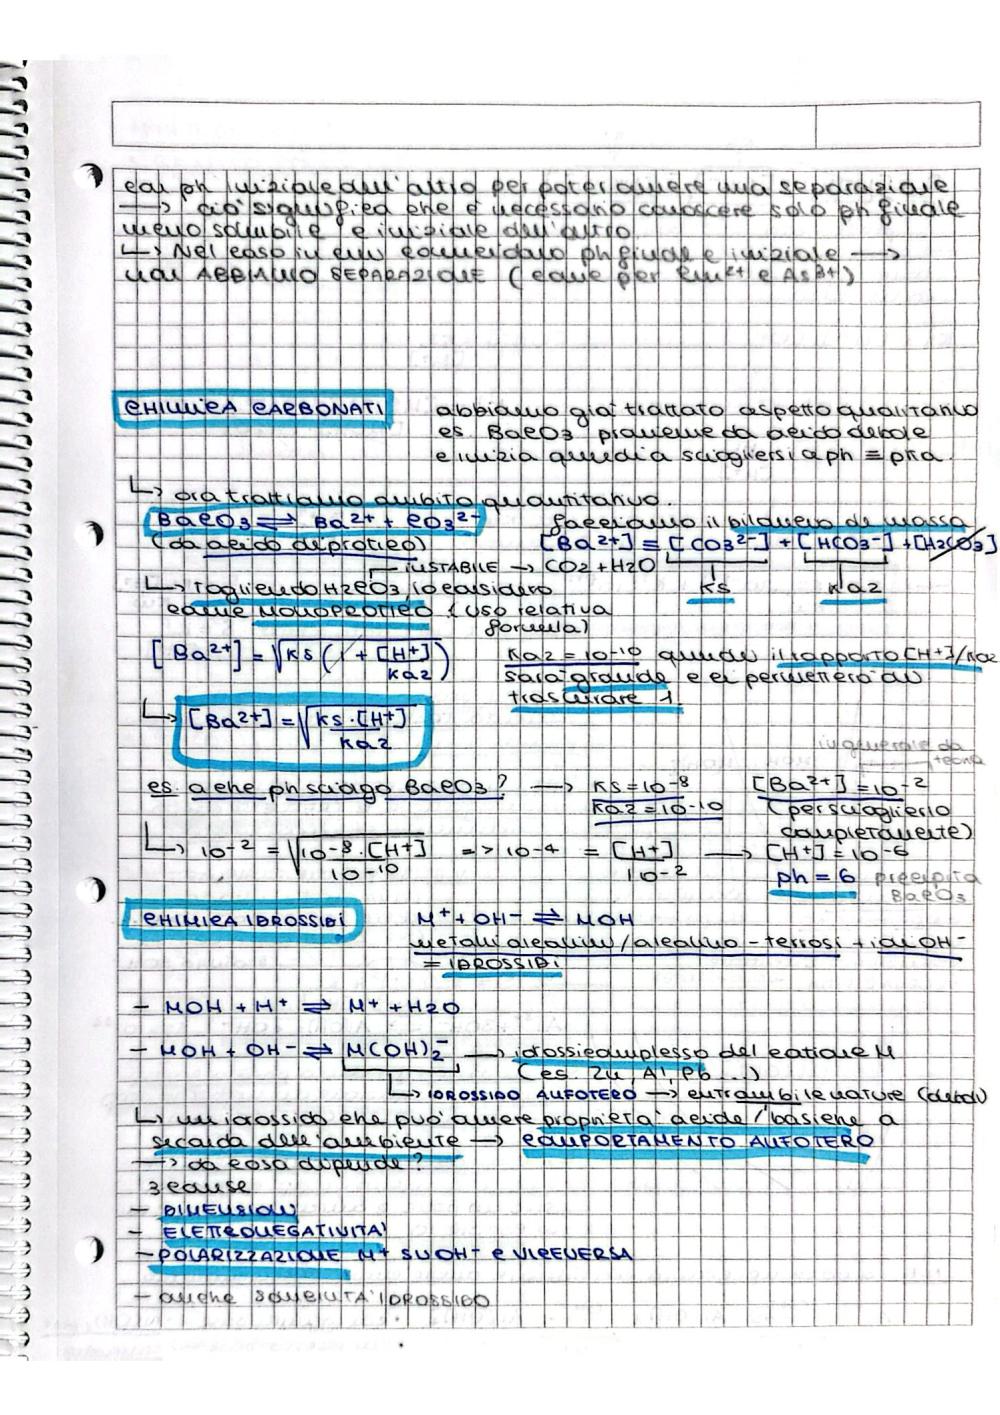 dal ph iniziale dell'altro per poter avere una separazione
→ ciò significa che è necessario conoscere solo ph finale
meno solubile e iniziale dell'altro
↳ Nel caso in cui coincidano ph finale e iniziale →
non ABBIAMO SEPARAZIONE (come per e As3+)
CHIMICA CARBONATI
abbiamo già trattato aspetto qualitativo
es. BaCO3 proviene da acido debole
e inizia quindi a sciogliersi a ph = pka.
↳ ora trattiamo ambito quantitativo.
BaCO3 ⇌ Ba2+ + CO3 2-
(da acido diprotico)
facciamo il bilancio di massa
[Ba2+] = [CO3 2-] + [HCO3-] + [H2CO3]
INSTABILE → CO2 + H2O
Ks Ka2
↳ Togliendo H2CO3, lo considero
come MONOPROTICO (uso relativa
formula)
[Ba2+] = √Ks (1 + [H+]/Ka2)
Ka2 = 10-10 quindi il rapporto [H+]/Ka2
sarà grande e ci permetterà di
trascurare 1
↳ [Ba2+] = √Ks·[H+]/Ka2
in generale da
teoria
es. a che ph sciolgo BaCO3? → Ks = 10-8 [Ba2+] = 10-2
Ka2 = 10-10 (per scioglierlo
completamente)
↳ 10-2 = √10-8·[H+]/10-10 => 10-4 = [H+]/10-2 → [H+] = 10-6
ph = 6 precipita
BaCO3
CHIMICA IDROSSIDI
M+ + OH- ⇌ MOH
metalli alcalini/alcalino-terrosi + ioni OH-
= IDROSSIDI
- MOH + H+ ⇌ M+ + H2O
- MOH + OH- ⇌ M(OH)2- → idrossicomplesso del catione M
(es. Zn, Al, Pb...)
↳ IDROSSIDO ANFOTERO → entrambi le nature (deboli)
↳ un idrossido che può avere proprietà acide/basiche a
seconda dell'ambiente → COMPORTAMENTO ANFOTERO
→ da cosa dipende?
3 cause
- DIMENSIONI
- ELETTRONEGATIVITA'
- POLARIZZAZIONE M+ SU OH- e VICEVERSA
- anche SOLUBILITA' IDROSSIDO